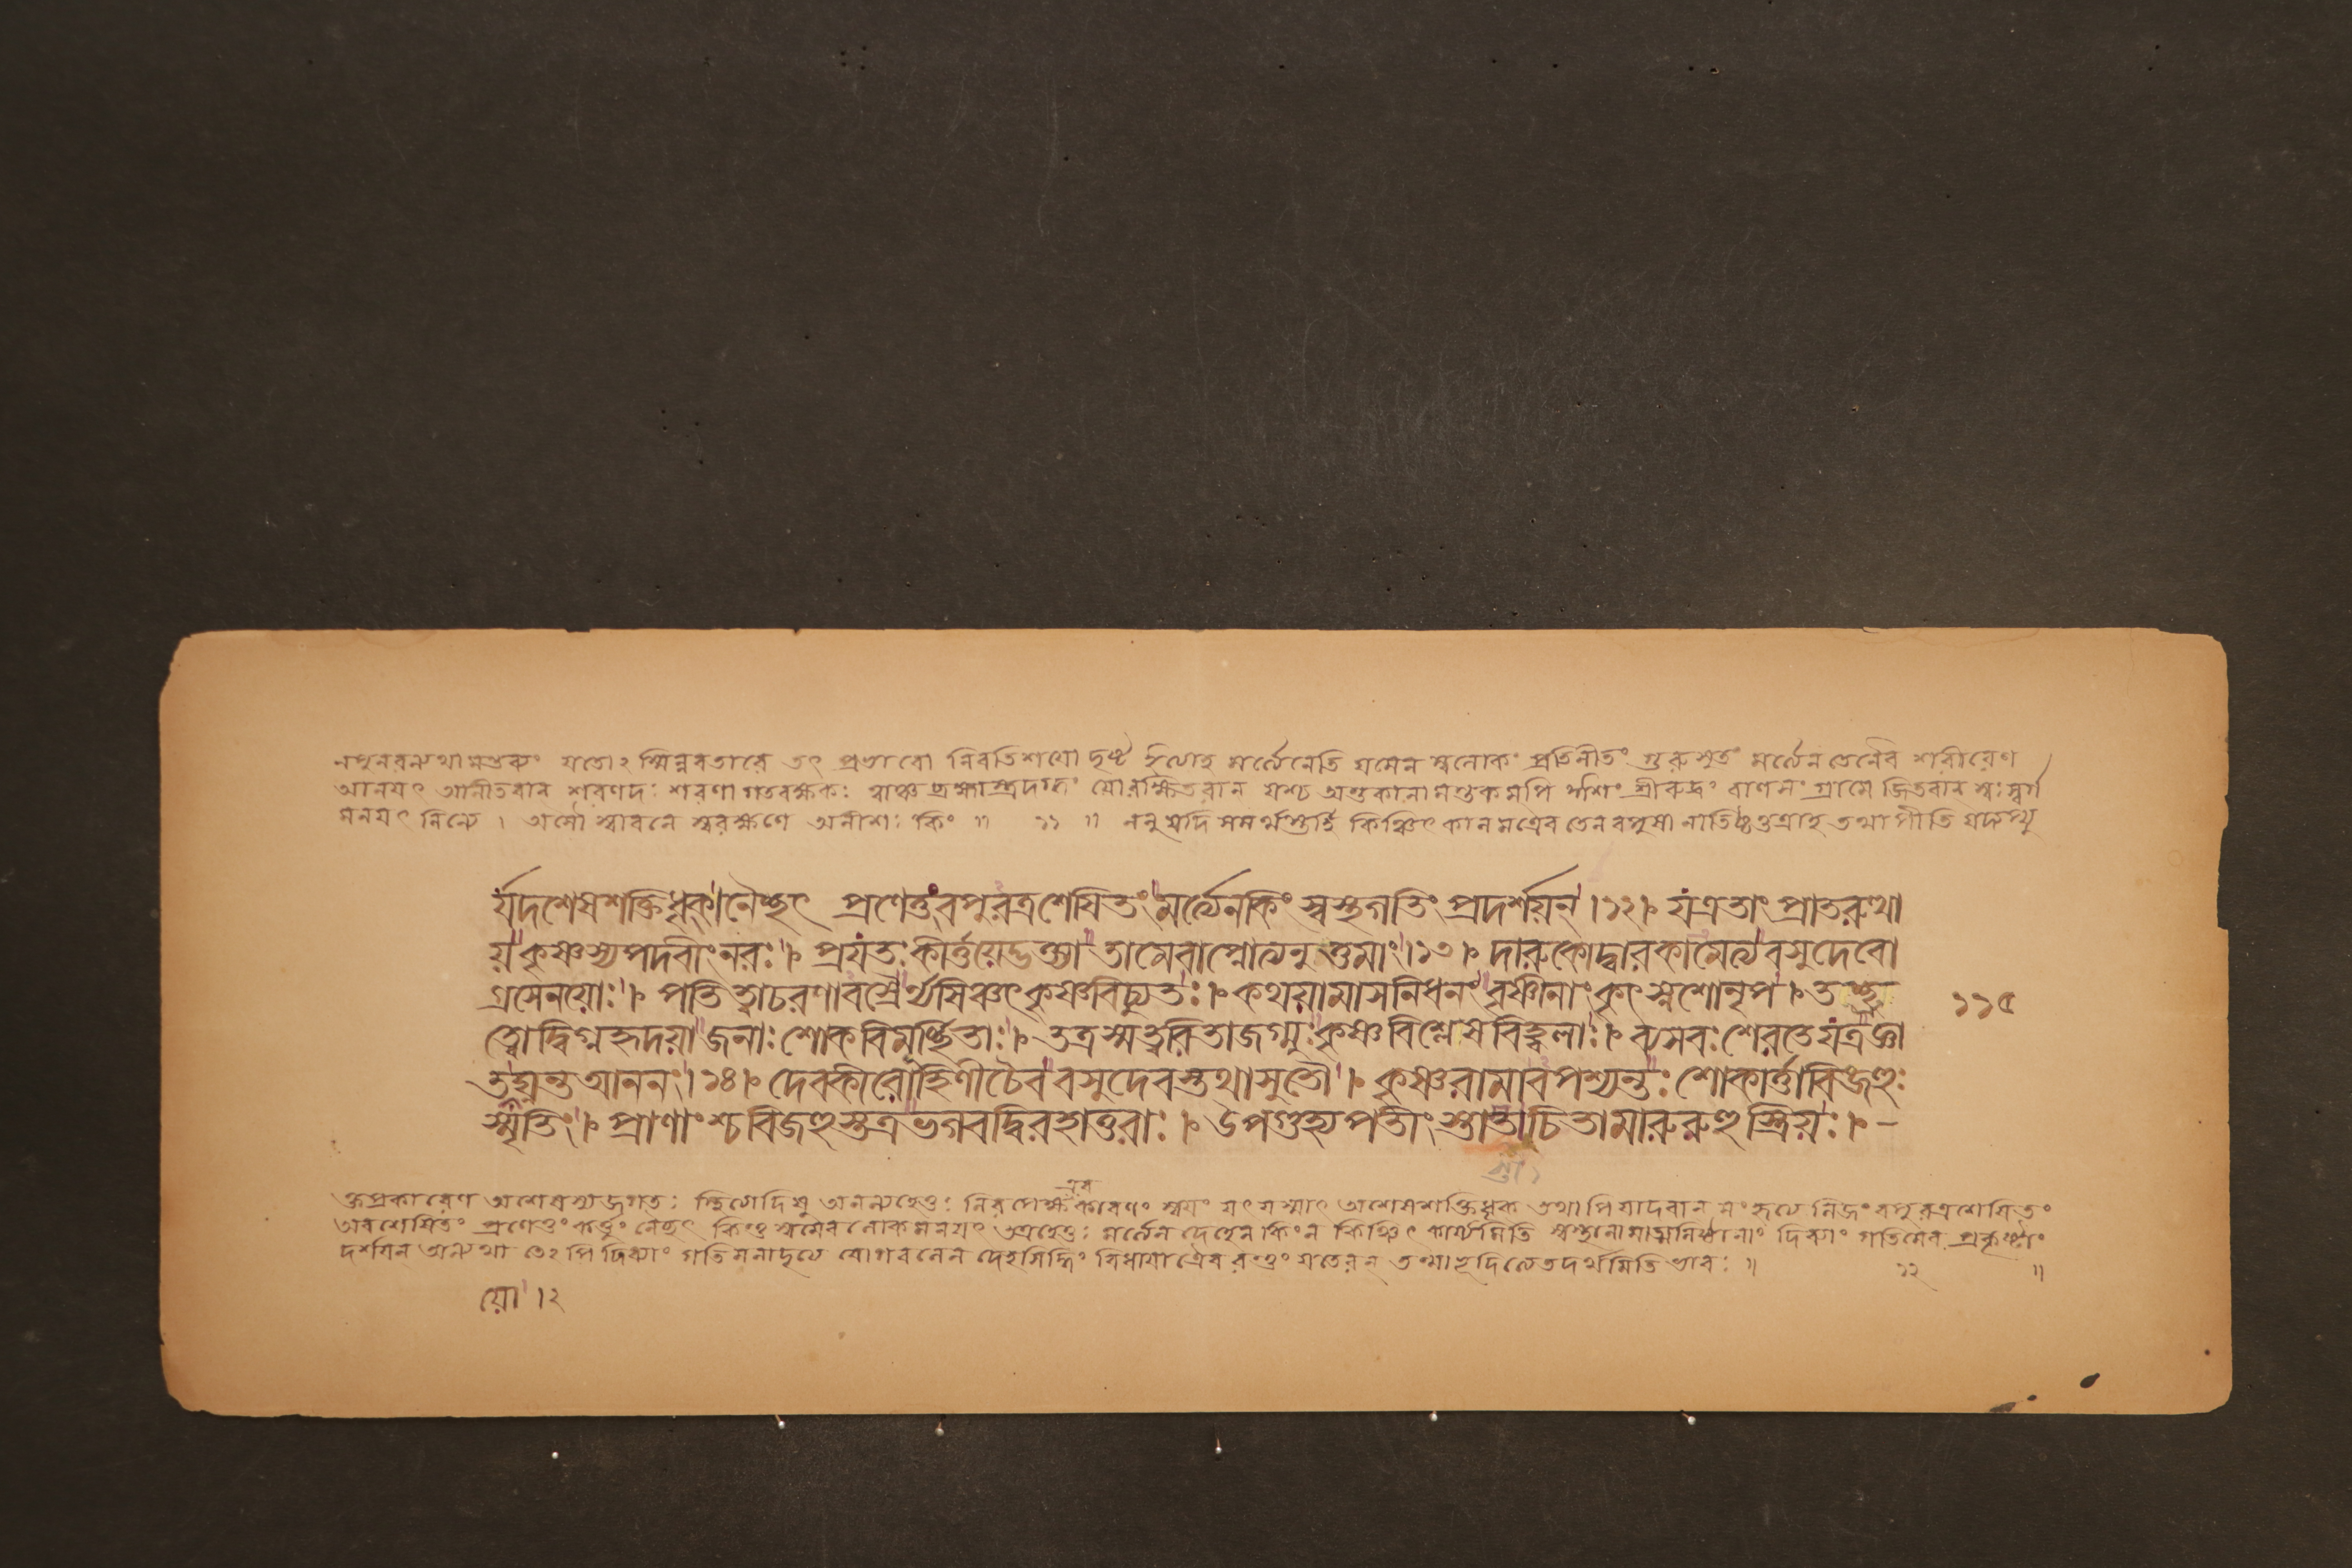 নপুনরন্যথামন্তব্যং যতোঽস্মিন্নবতারে তৎ প্রভাবো নিরতিশয়ো দৃষ্ট ইত্যাহ মর্ত্যেনেতি যমেন স্বলোকং প্রতিনীতং গুরুসুতং মর্ত্যেন তেনৈব শরীরেণ
আনয়ৎ আনীতবান শরণদঃ শরণাগতরক্ষকঃ ত্বাঞ্চ ব্রহ্মাস্ত্রদগ্ধং যোরক্ষিতবান যশ্চ অন্তকানামন্তকমপি ঈশং শ্রীরুদ্রং বাণসংগ্রামে জিতবান স্বঃ স্বর্গ
মনয়ৎ নিন্যে । অসৌ স্বাবনে স্বরক্ষণে অনীশঃ কিং ॥ ১১ ॥ ননু যদি সমর্থস্তর্হি কিঞ্চিৎ কালমত্রৈব তেনবপুষা নাতিষ্ঠত্তত্রাহ তথাপীতি যদ্যপ্যু
র্যদশেষশক্তিধৃক্ । নৈচ্ছৎ প্রণেতুংবপুরত্রশেষিতং মর্ত্যেনকিং স্বস্থগতিং প্রদর্শয়ন্ । ১২ । য এতাং প্রাতরুত্থা
য় কৃষ্ণস্যপদবীং নরঃ । প্রযতঃ কীর্ত্তয়েদ্ভক্ত্যা তামেবাপ্নোত্যনুত্তমাং । ১৩ । দারুকোদ্বারকামেত্য বসুদেবো
গ্রসেনয়োঃ । পতিত্বাচরণাবস্রৈর্ন্যসিঞ্চৎ কৃষ্ণবিচ্যুতঃ । কথয়ামাসনিধনং বৃষ্ণীনাং কৃৎস্নশোনৃপ । তচ্ছ্রু ১১৫
ত্বোদ্বিগ্নহৃদয়া জনাঃ শোকবিমূর্চ্ছিতাঃ । তত্রস্মত্বরিতাজগ্মুঃ কৃষ্ণবিশ্লেষবিহ্বলাঃ । ব্যসবঃ শেরতেযত্রজ্ঞা
তয়োঘ্নন্ত আননং । ১৪ । দেবকীরোহিণীচৈব বসুদেবস্তথাসুতৌ । কৃষ্ণরামাবপশ্যন্তঃ শোকার্ত্তাবিজহুঃ
স্মৃতিং । প্রাণাংশ্চবিজহুস্তত্রভগবদ্বিরহাতুরাঃ । উপগুহ্যপতীংস্তাতচিতামারুরুহুস্ত্রিয়ঃ । -
স্তা
এব
ক্তপ্রকারেণ অশেষস্যজগতঃ স্থিত্যাদিষু অনন্যহেতুঃ নিরপেক্ষকারণং স্বয়ং যৎ যস্মাৎ অশেষশক্তিধৃক তথাপি যাদবান সংহৃত্য নিজং বপুরত্রশেষিতং
অবশেষিতং প্রণেতুং কর্ত্তুং নৈচ্ছৎ কিন্তু স্বমেব লোকমনয়ৎ তত্রহেতুঃ মর্ত্যেন দেহেন কিং ন কিঞ্চিৎ কার্য্যমিতি স্বস্থানামাত্মনিষ্ঠানাং দিব্যাং গতিমেব প্রকৃষ্টাং
দর্শয়ন অন্যথা তেঽপি দিব্যাং গতিমনাদৃত্য যোগবলেন দেহসিদ্ধিং বিধায়াত্রৈব রন্তুং যতেরন্ তন্মাভূদিত্যেতদর্থমিতিভাবঃ ॥ ১২ ॥
য়ো । ২